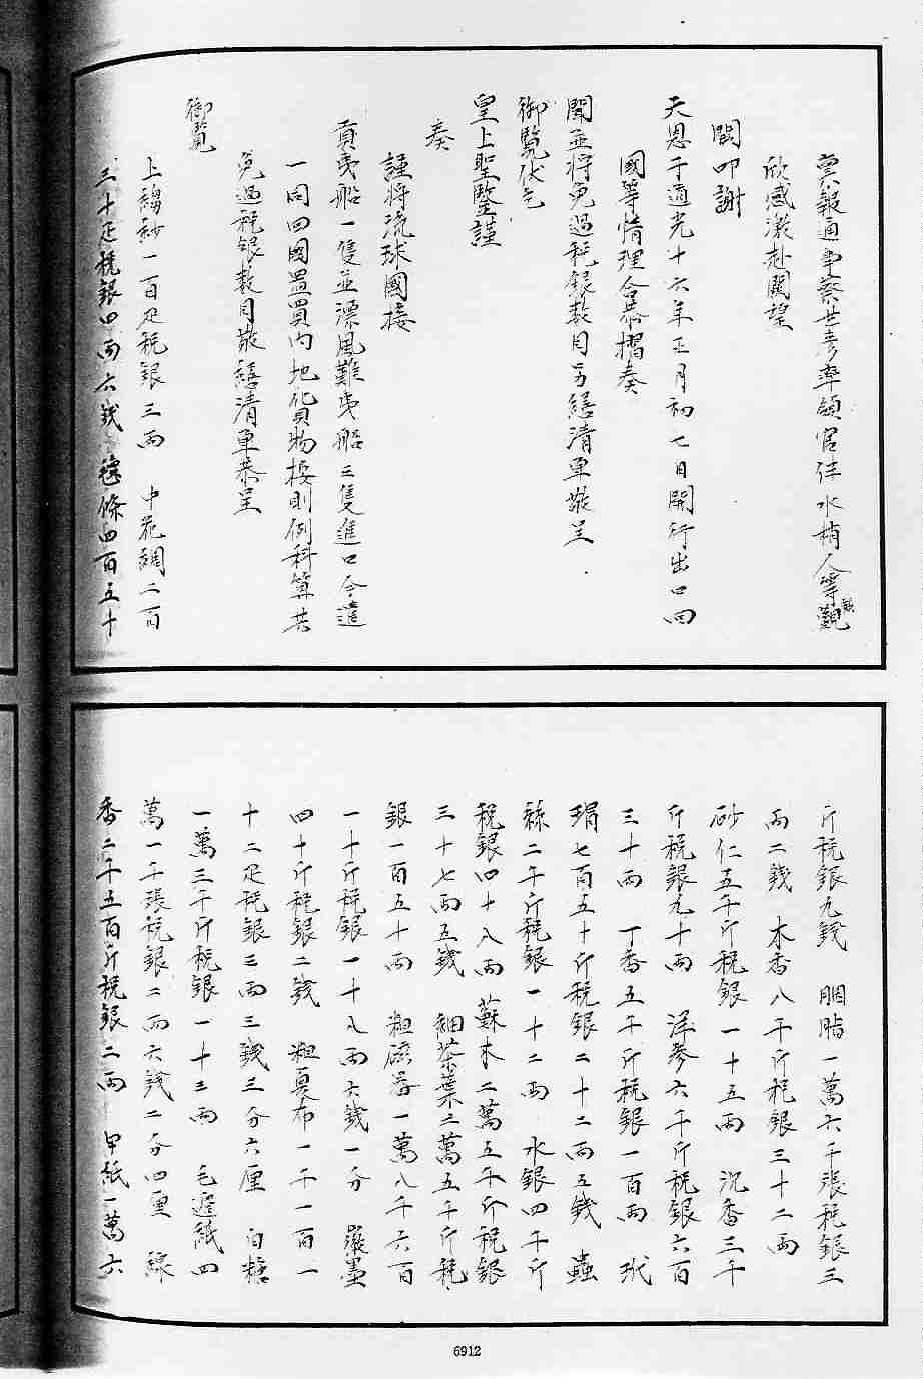 稟報通事蔡世彥率領官伴水梢人等觀
欣感激赴闕望
闕叩謝
天恩于道光十六年正月初七日開行出口回
國等情理合恭摺奏
聞並將免過稅銀數目另繕清單敬呈
御覽伏乞
皇上聖鑒謹
奏
謹將流球國接
貢曳船一隻並漂風難曳船三隻進口今遣
一同回國置買內地化貝物按則例科算共
免過稅銀數目敬繕清單恭呈
御覽
上縐紗一百疋稅銀三兩 中花綢二百
三十疋稅銀四兩六錢 條四百五十
斤稅銀九錢 胭脂一萬六千張稅銀三
兩二錢 木香八千斤稅銀三十二兩
砂仁五千斤稅銀一十五兩 沉香三千
斤稅銀九十兩 洋參六千斤稅銀六百
三十兩 丁香五千斤稅銀一百兩 玳
瑁七百五十斤稅銀二十二兩五錢 蟲
絲二千斤稅銀一十二兩 水銀四千斤
稅銀四十八兩 蘇木二萬五千斤稅銀
三十七兩五錢 細茶葉二萬五千斤稅
銀一百五十兩 粗磁器一萬八千六百
一十斤稅銀一十八兩六錢一分 徽墨
四十斤稅銀二錢 粗夏布一千一百一
十二疋稅銀三兩三錢三分六厘 白糖
一萬三千斤稅銀一十三兩 毛邊紙四
萬一千張稅銀二兩六錢二分四厘 線
香二千五百斤稅銀二兩 甲紙一萬六
6912